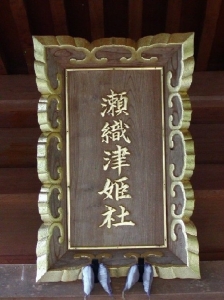 瀬織津姫社